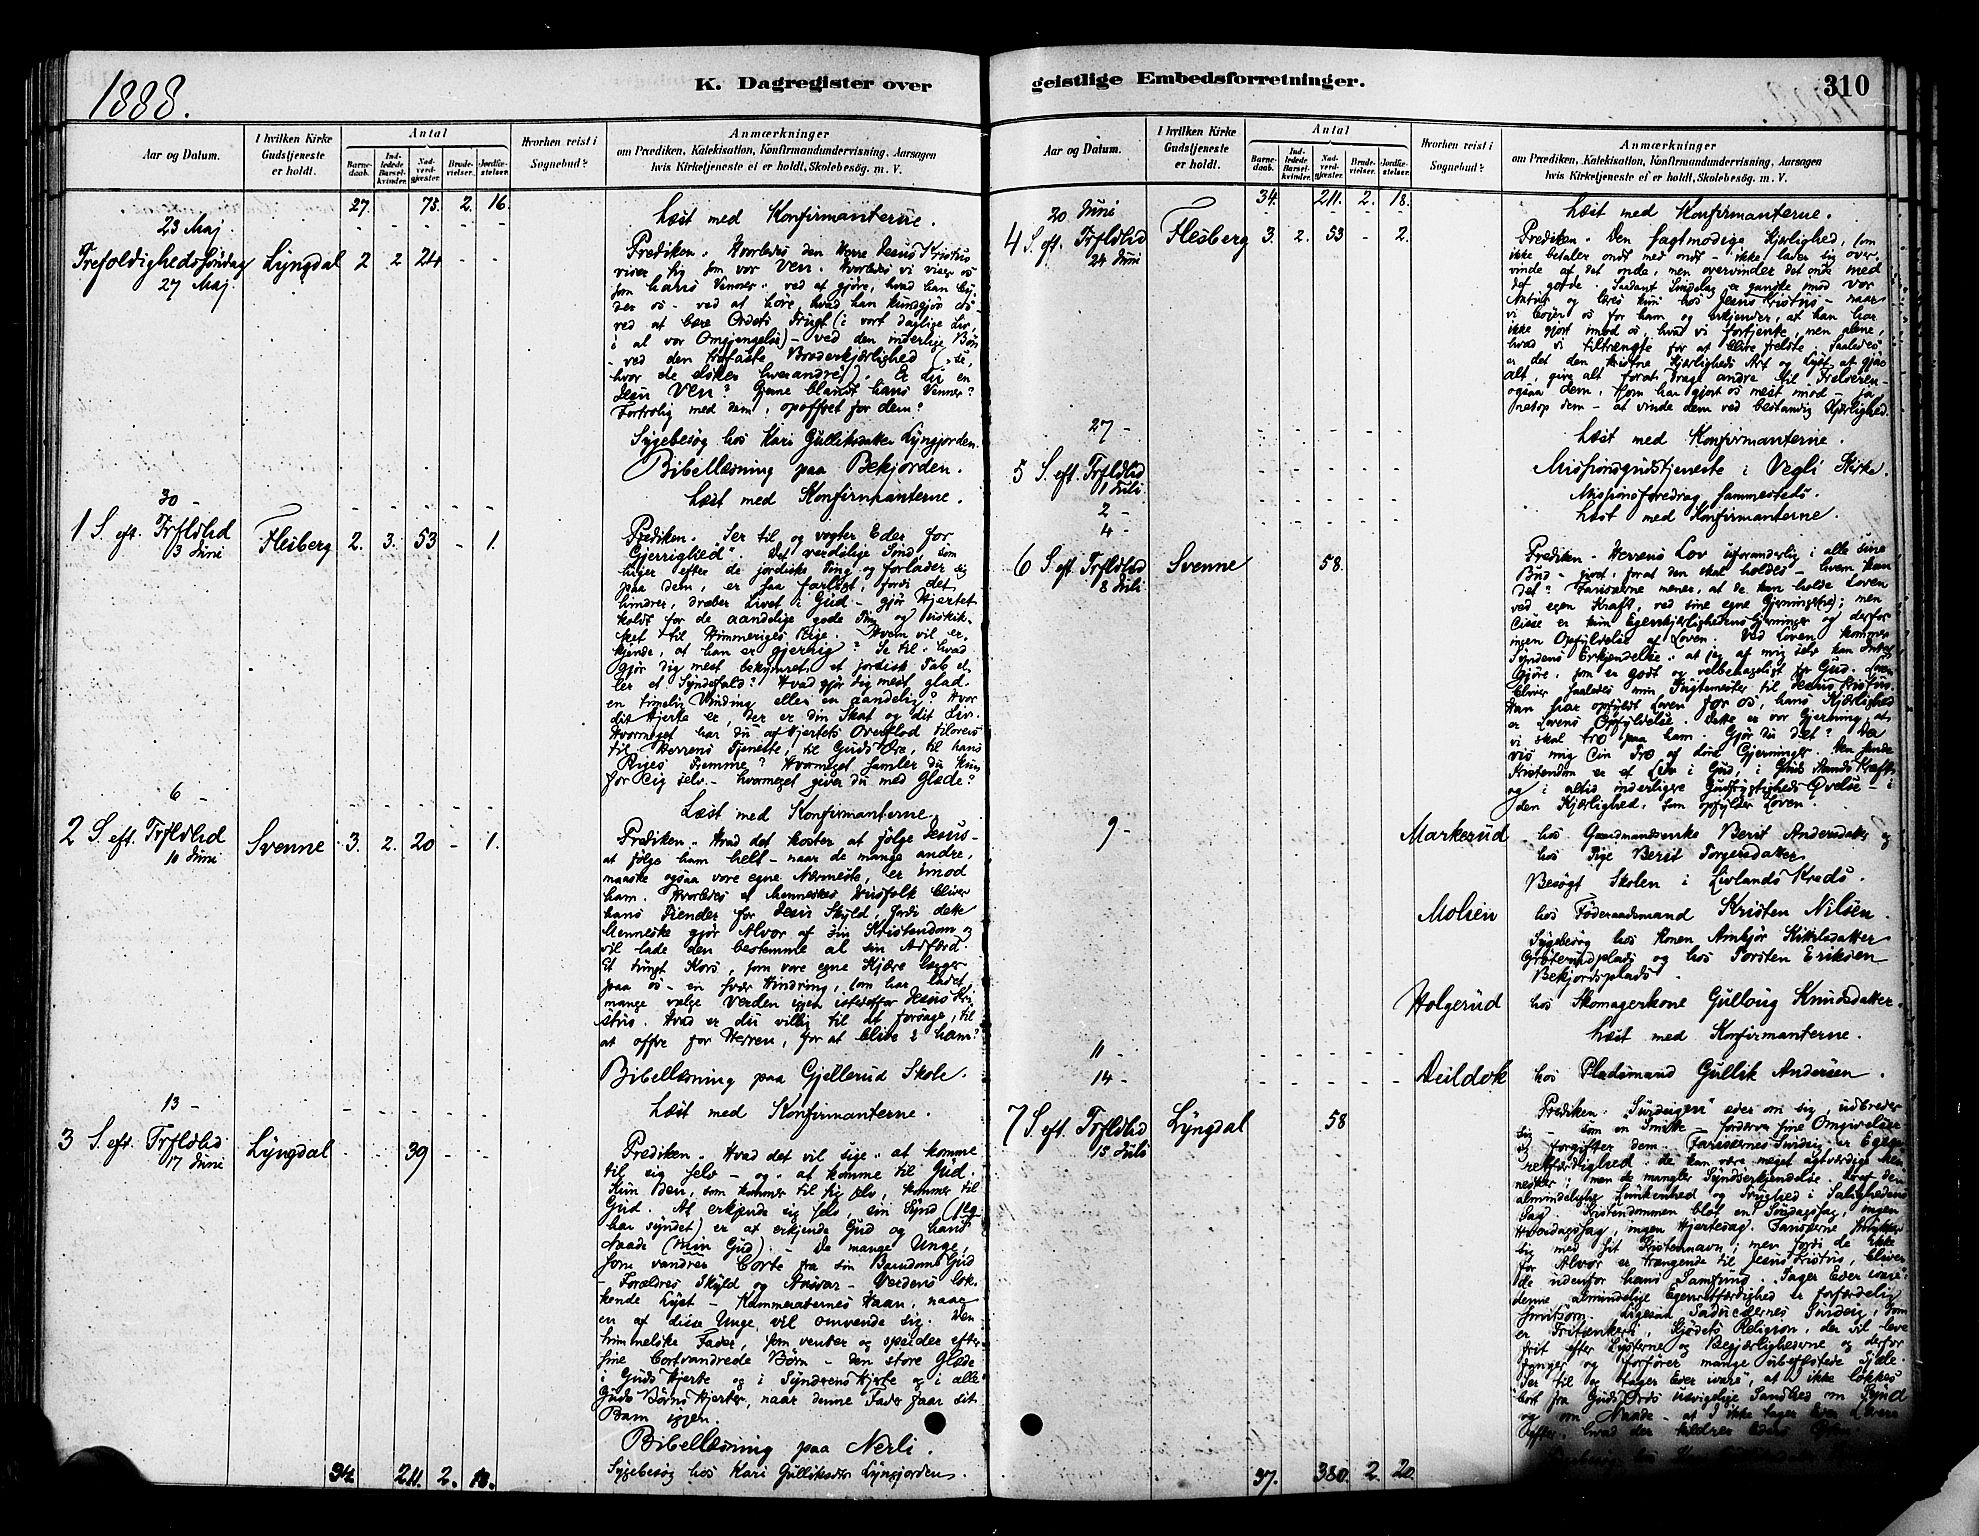 1888.
K. Dagregister over
Aar og Datum.
I hvilken Kirke
Gudstjeneste
er holdt.
Antal
Barne-
daab.
Ind-
ledede
Barsel-
kvinder.
Nad-
verd-
gjæster.
Brude-
vielser.
Jordfæ-
stelser.
Hvorhen reist i
Sognebud?
Anmærkninger
om Prædiken, Katekisation, Konfirmandundervisning, Aarsagen
hvis Kirketjeneste ei er holdt, Skolebesøg. m. V.
27. 73. 2. 16.
23 Maj. - - - - - Læst med Konfirmanterne.
Trefoldighedssøndag Lyngdal 2 2 24 - -
27 Maj.
Prediken. Hvorledes den Herre Jesus Kristus
viser sig som vor Ven. Hvorledes vi viser os
som hans Venner: ved at gjøre, hvad han by-
der os - ved at høre, hvad han kundgjør os -
ved at bære Ordets Frugt (i vort daglige Liv,
i al vor Omgjengelse) - ved den inderlige Bøn
- ved den trofaste Broderkjærlighed (se,
hvor de elsker hverandre!). Er du en
Jesu Ven? Gjerne blandt hans Venner?
Fortrolig med dem, opoffret for dem?
Sygebesøg hos Kari Gulliksdatter Lyngjorden.
Bibellæsning paa Bekjorden.
30 - - - - - - Læst med Konfirmanterne.
1 S. eft. Trfldhd Flesberg 2. 3. 53 - 1.
3 Juni
Prediken. Ser til og vogter Eder for
Gjerrighed". Det verdslige Sind, som
higer efter de jordiske Ting og forlader sig
paa dem, er saa farligt, fordi det
hindrer, dræber Livet i Gud - gjør Hjertet
koldt for de aandelige gode Ting og uskik-
ket til Himmeriges Rige. Hvem vil er-
kjende, at han er gjerrig? Se til: hvad
gjør dig mest bekymret, et jordisk Tab el-
ler et Syndefald? Hvad gjør dig mest glad,
en timelig Vinding eller en aandelig? Hvor
dit Hjerte er, der er din Skat og dit Liv.
Hvormeget har du af Hjertets Overflod tilovers
til Herrens Tjeneste, til Guds Ære, til hans
Riges Fremme? Hvormeget samler du kun
for Dig selv - hvormeget giver du med Glæde?
6 - - - - - - Læst med Konfirmanterne.
2 S. eft. Trfldhd Svenne 3. 2. 20 - 1.
10 Juni
Prediken. Hvad det koster at følge Jesus -
at følge ham helt - naar de mange andre,
maaske ogsaa vore egne Nærmeste, er imod
ham. Hvorledes et Menneskes Husfolk bliver
hans Fiender for Jesu Skyld, fordi dette
Menneske gjør Alvor af sin Kristendom og
vil lade den bestemme al sin Adfærd.
Et tungt Kors, som vore egne Kjære lægger
paa os - en svær Hindring, som har ladet
mange vælge Verden igjen istedetfor Jesus Kri-
stus. Hvad er du villig til at forsage, til
at offre for Herren, for at blive i ham?
Bibellæsning paa Gjellerud Skole.
13 - - - - - - Læst med Konfirmanterne.
3 S. eft. Trfldhd Lyngdal - - 39 - -
17 Juni
Prediken. Hvad det vil sige: at komme
til sig selv - og: at komme til Gud.
Kun den, som kommer til sig selv, kommer til
Gud. At erkjende sig selv, sin Synd (jeg
har syndet) er at erkjende Gud og hans
Naade (min Gud). - De mange Unge,
som vandrer borte fra sin Barndoms Gud
- Forældres Skyld og Ansvar - Verdens lok-
kende Lyst - Kammeraternes Haan, naar
en af disse Unge vil omvende sig. Den
himmelske Fader, som venter og speider efter
sine bortvandrede Børn - den store Glæde
i Guds Hjerte og i Synderens Hjerte og i alle
Guds Børns Hjerter, naar denne Fader faar sit
Barn igjen.
Bibellæsning paa Nerli.
Sygebesøg hos Kari Gulliksdtr Lyngjorden.
34. 211. 2. 18.
geistlige Embedsforretninger.
310
Aar og Datum.
I hvilken Kirke
Gudstjeneste
er holdt.
Antal
Barne-
daab.
Ind-
ledede
Barsel-
kvinder.
Nad-
verd-
gjæster.
Brude-
vielser.
Jordfæ-
stelser.
Hvorhen reist i
Sognebud?
Anmærkninger
om Prædiken, Katekisation, Konfirmandundervisning, Aarsagen
hvis Kirketjeneste ei er holdt, Skolebesøg. m. V.
34. 211. 2. 18.
20 Juni - - - - - Læst med Konfirmanterne.
4 S. eft. Trfldhd Flesberg 3. 2. 53 - 2.
24 Juni
Prediken. Den sagtmodige Kjærlighed, som
ikke betaler ondt med ondt - ikke lader sig over-
vinde af det onde, men overvinder det onde med
det gode. Saadant Sindelag er ganske imod vor
Natur og læres kun hos Jesus Kristus - naar
vi bøjer os for ham og erkjender, at han har
ikke gjort imod os, hvad vi fortjente, men alene,
hvad vi tiltrængte for at blive frelste. Saaledes
er det den kristne Kjærligheds Art og Lyst at gjøre
alt, give alt forat drage andre til Frelseren -
ogsaa dem, som har gjort os mest imod - ja
netop dem - at vinde dem ved bestandig Kjærlighed.
27 - - - - - - Læst med Konfirmanterne.
5 S. eft. Trfldhd - - - - - Missionsgudstjeneste i Vegli Kirke.
1 Juli
2 - - - - - - Missionsforedrag sammesteds.
4 - - - - - - Læst med Konfirmanterne.
6 S. eft. Trfldhd Svenne 58.
8 Juli
Prediken. Herrens Lov uforanderlig i alle sine
Bud - givet, forat den skal holdes - hvem kan
det? Farisæerne mener, at de kan holde Loven
ved egen Kraft, ved sine egne Gjerninger; men
disse er kun Egenkjærlighedens Gjerninger og derfor
ingen Opfyldelse af Loven. Ved Loven kommer
Syndens Erkjendelse: at jeg af mig selv kan intet
gjøre, som er godt og velbehageligt for Gud. Loven
bliver saaledes min Tugtemester til Jesus Kristus.
Han har opfyldt Loven for os, hans Kjærlighed
er Lovens Opfyldelse. Dette er vor Gjerning, at
vi skal tro paa ham. Gjør du det? Da
vis mig din Tro af dine Gjerninger. Den sande
Kristendom er et Liv i Gud, i Guds Aands Kraft
og i altid inderligere Gudfrygtigheds Øvelse - i
den Kjærlighed, som opfylder Loven.
9 - Markerud hos Gaardmandsenke Berit Andersdatter og
hos Pige Berit Torgersdatter.
Besøgt Skolen i Livlands Kreds.
Molsen hos Føderaadsmand Kristen Nilsen.
Sygebesøg hos Konen Anbjør Kittilsdatter
Grøterudplads og hos Torsten Eriksen
Bekjordsplads.
Holgerud hos Skomagerkone Gullaug Knudsdatter.
11 - - - - - - Læst med Konfirmanterne.
14 - - - - - - Deildok hos Pladsmand Gullik Andersen.
7 S. eft. Trfldhd Lyngdal 58
15 Juli
Prediken. "Surdeigen" æder om sig, udbreder
sig - som en Smitte - forderver sine Omgivelser
og forgifter dem. Farisæernes Surdeig er Egen-
retfærdighed: de kan være meget agtværdige Men-
nesker; men de mangler Synderkjendelse. Deraf den
almindelige Lunkenhed og Tryghed i Salighedens
Sag. Kristendommen blot en Søndagssag, ingen
Hverdagssag, ingen Hjertesag. Farisæerne smykker
sig med sit Kristennavn; men fordi de ikke
for Alvor er trængende til Jesus Kristus, bliver
de udenfor hans Samfund. "Tager Eder vare":
denne almindelige Egenretfærdighed er forfærdelig
smitsom. Ligesaa Sadducæernes Surdeig, som
er Fritænkeri, Kjødets Religion, der vil leve
frit efter Lysterne og Begjærlighederne og derfor
fanger og forfører mange ubefæstede Sjæle.
Ser til og tager Eder vare, at I ikke lokkes
bort fra Guds Ords usvigelige Sandhed om Synd
og om Naade - at I ikke tager
efter, hvad der kildrer Eders Øren.
37. 380. 2. 20.